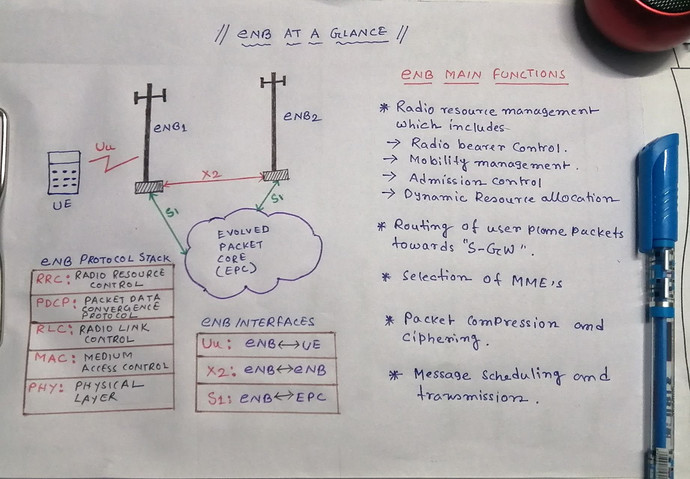 // eNB AT A GLANCE //
eNB1
eNB2
Uu
X2
UE
S1
S1
EVOLVED
PACKET
CORE
(EPC)
eNB PROTOCOL STACK
RRC: RADIO RESOURCE
CONTROL
PDCP: PACKET DATA
CONVERGENCE
PROTOCOL
RLC: RADIO LINK
CONTROL
MAC: MEDIUM
ACCESS CONTROL
PHY: PHYSICAL
LAYER
eNB INTERFACES
Uu: eNB↔UE
X2: eNB↔eNB
S1: eNB↔EPC
eNB MAIN FUNCTIONS
* Radio resource management
which includes
→ Radio bearer Control.
→ Mobility management.
→ Admission control
→ Dynamic Resource allocation
* Routing of user plane packets
towards "S-GW".
* Selection of MME's
* Packet compression and
ciphering.
* Message scheduling and
transmission.